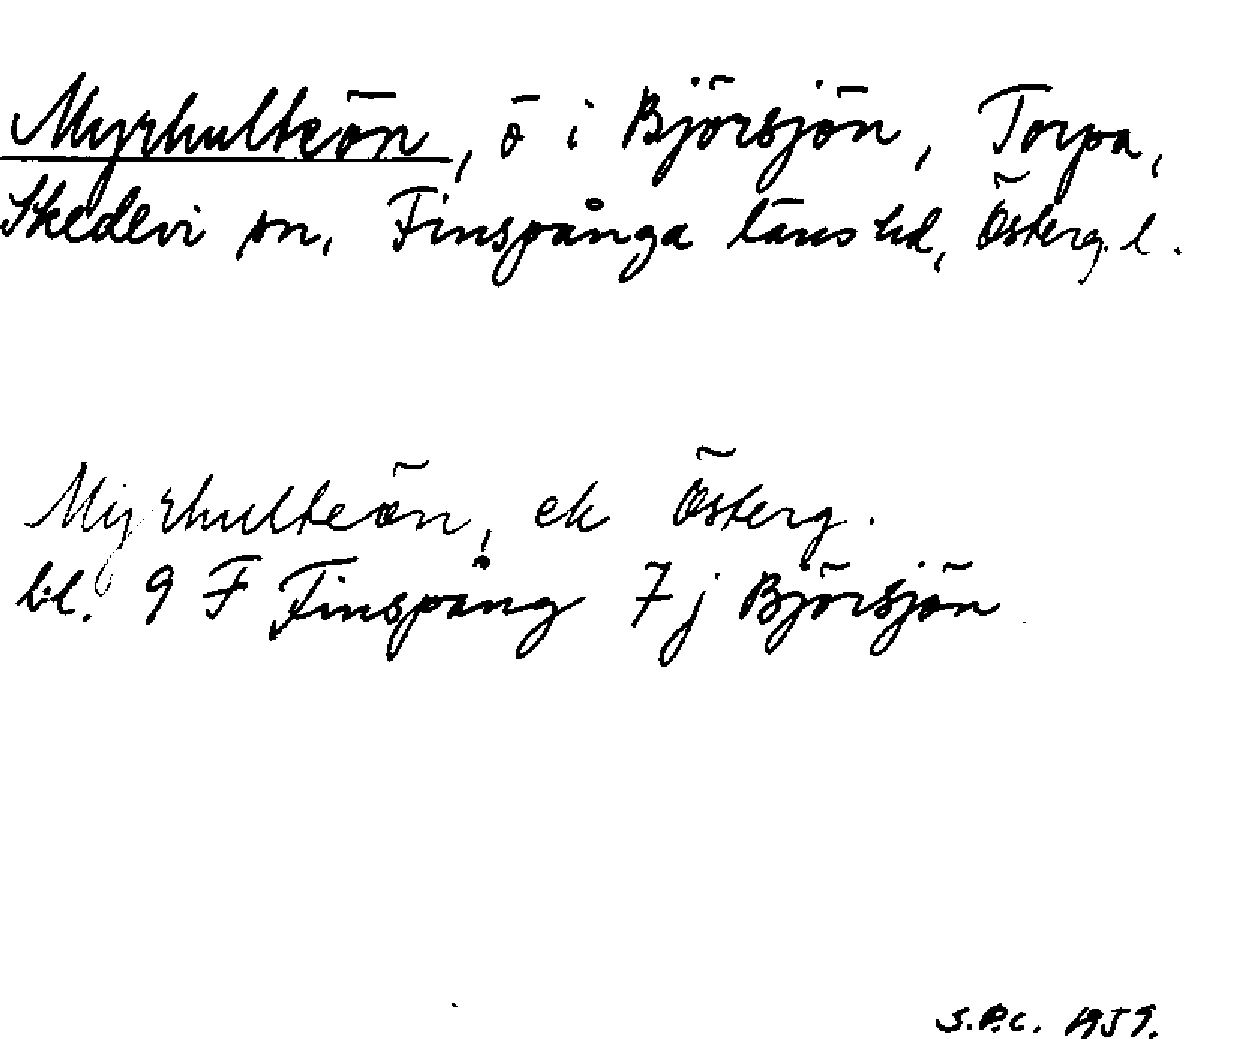 Myrhulteön, ö i Björsjön, Torpa,
Skedevi sn, Finspånga läns hd, Österg. l.
Myrhulteön, ek Österg.
bl. 9 F Finspång 7j Björsjön
S.P.C. 1959.